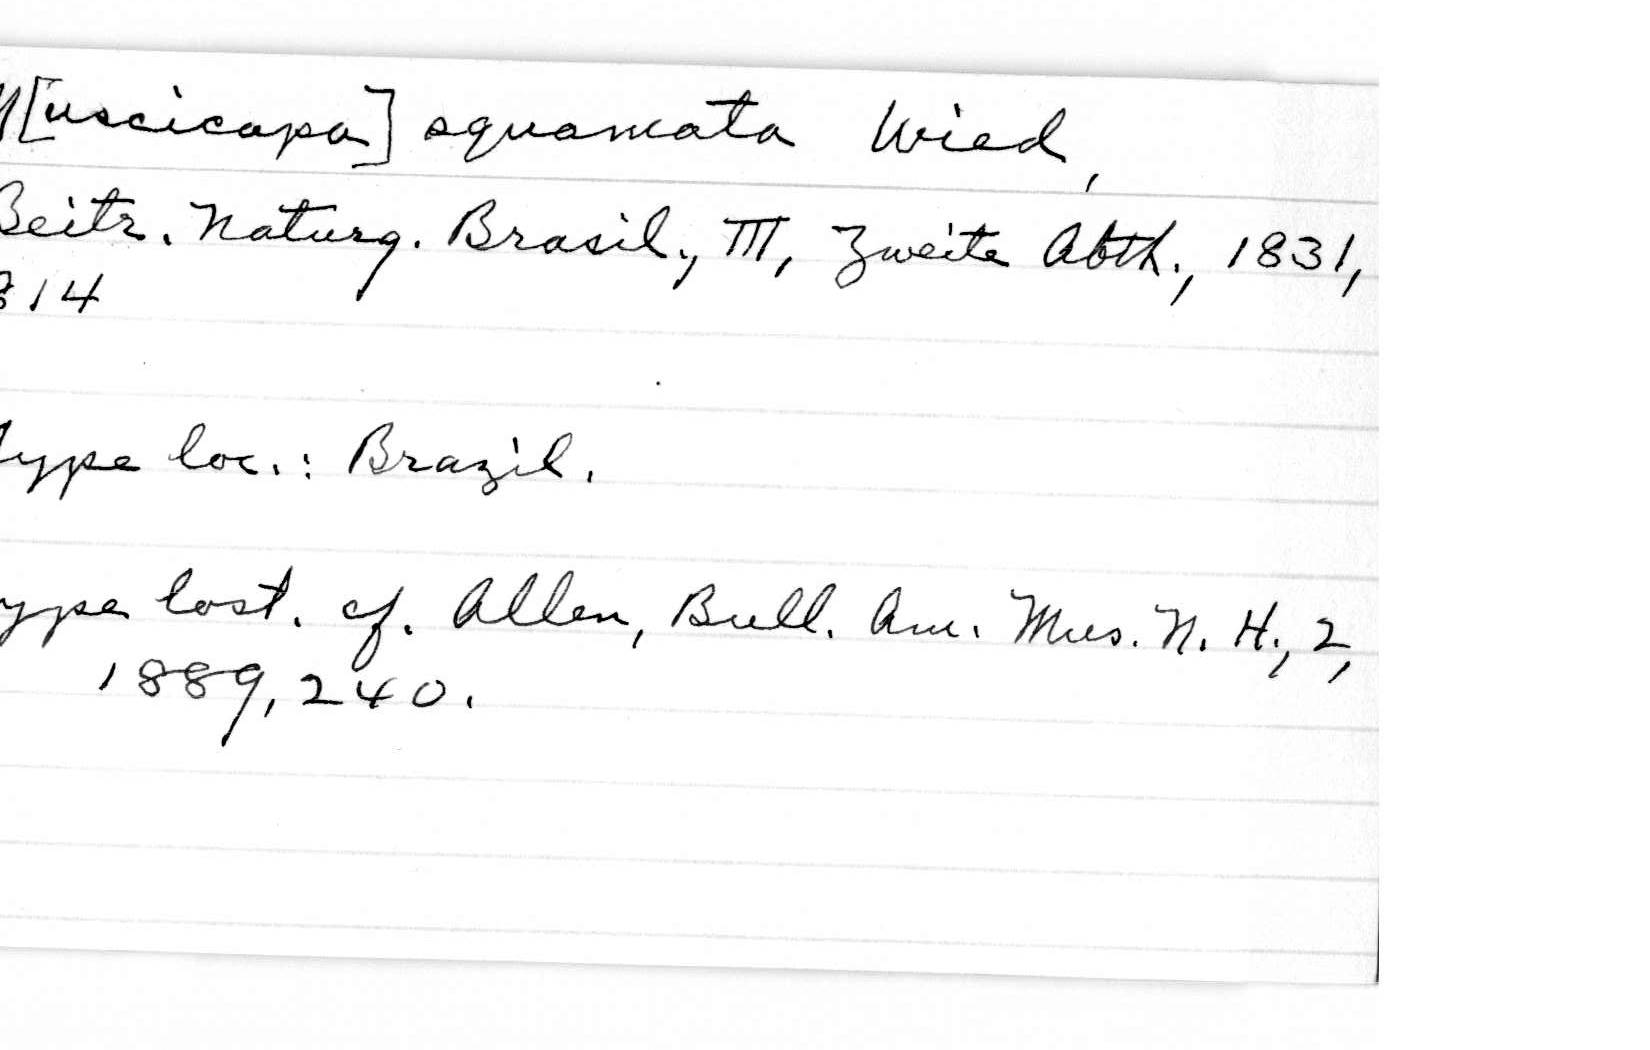 M[uscicapa] squamata Wied,
Beitr. Naturg. Brasil., III, Zweite Abth., 1831,
814
Type loc.: Brazil.
Type lost. cf. Allen, Bull. Am. Mus. N. H., 2,
1889, 240.